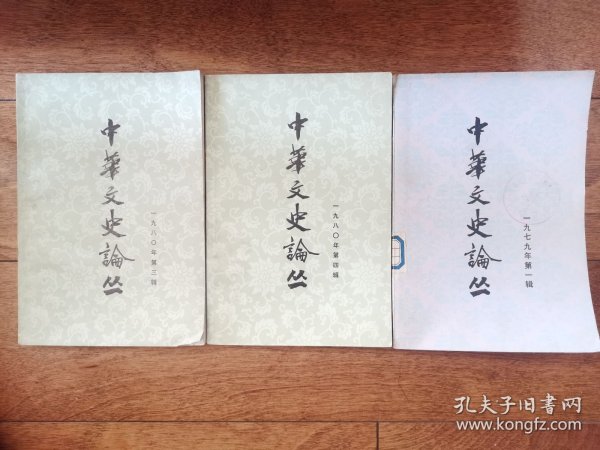 中華文史論丛
一九八〇年第三辑
中華文史論丛
一九八〇年第四辑
中華文史論丛
一九七九年第一辑
孔夫子旧書网
www.kongfz.com